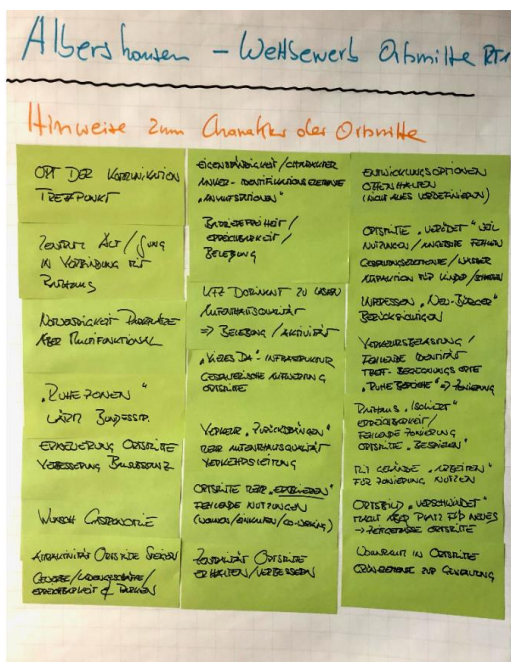 Albershausen – Wettbewerb Ortsmitte RT1
Hinweise zum Charakter der Ortsmitte
ORT DER KOMMUNIKATION
TREFFPUNKT
ZENTRUM ALT/JUNG
IN VERBINDUNG MIT
RATHAUS
NOTWENDIGKEIT PARKPLÄTZE
ABER MULTIFUNKTIONAL
"RUHEZONEN"
LÄRM BUNDESSTR.
ERNEUERUNG ORTSMITTE
VERBESSERUNG
WUNSCH GASTRONOMIE
ATTRAKTIVITÄT ORTSMITTE STEIGERN
GEWERBE/LADENGESCHÄFTE/
ERREICHBARKEIT & PARKEN
EIGENSTÄNDIGKEIT/CHARAKTER
ANKER- IDENTIFIKATIONSELEMENTE
BARRIEREFREIHEIT/
ERREICHBARKEIT/
BELEBUNG
KFZ DOMINANT ZU LASTEN
AUFENTHALTSQUALITÄT
=> BELEBUNG/AKTIVITÄT
"VIELES DA" - INFRASTRUKTUR
GESTALTERISCHE AUFWERTUNG
ORTSMITTE
VERKEHR "ZURÜCKDRÄNGEN"
MEHR AUFENTHALTSQUALITÄT
VERKEHRSLEITUNG
ORTSMITTE MEHR
FEHLENDE NUTZUNGEN
(WOHNEN/EINKAUFEN/CO-WORKING)
ZENTRALITÄT ORTSMITTE
ERHALTEN/VERBESSERN
ENTWICKLUNGSOPTIONEN
OFFENHALTEN
(NICHT ALLES VORDEFINIEREN)
ORTSMITTE "VERÖDET" WEIL
NUTZUNGEN/ANGEBOTE FEHLEN
GESTALTUNGSELEMENTE/WASSER
ATTRAKTION FÜR KINDER/
INTERESSEN "NEU-BÜRGER"
BERÜCKSICHTIGEN
VERKEHRSBELASTUNG/
FEHLENDE IDENTITÄT
TREFF- BEGEGNUNGSORTE
"RUHEBEREICHE" => ZONIERUNG
RATHAUS "ISOLIERT"
ERREICHBARKEIT/
FEHLENDE ZONIERUNG
ORTSMITTE "BESPIELEN"
MIT GELÄNDE "ARBEITEN"
FÜR ZONIERUNG NUTZEN
ORTSBILD "VERSCHWINDET"
MACHT ABER PLATZ FÜR NEUES
-> ZEITGEMÄSSE ORTSMITTE
WOHNRAUM IN ORTSMITTE
GRÜNELEMENTE ZUR GESTALTUNG